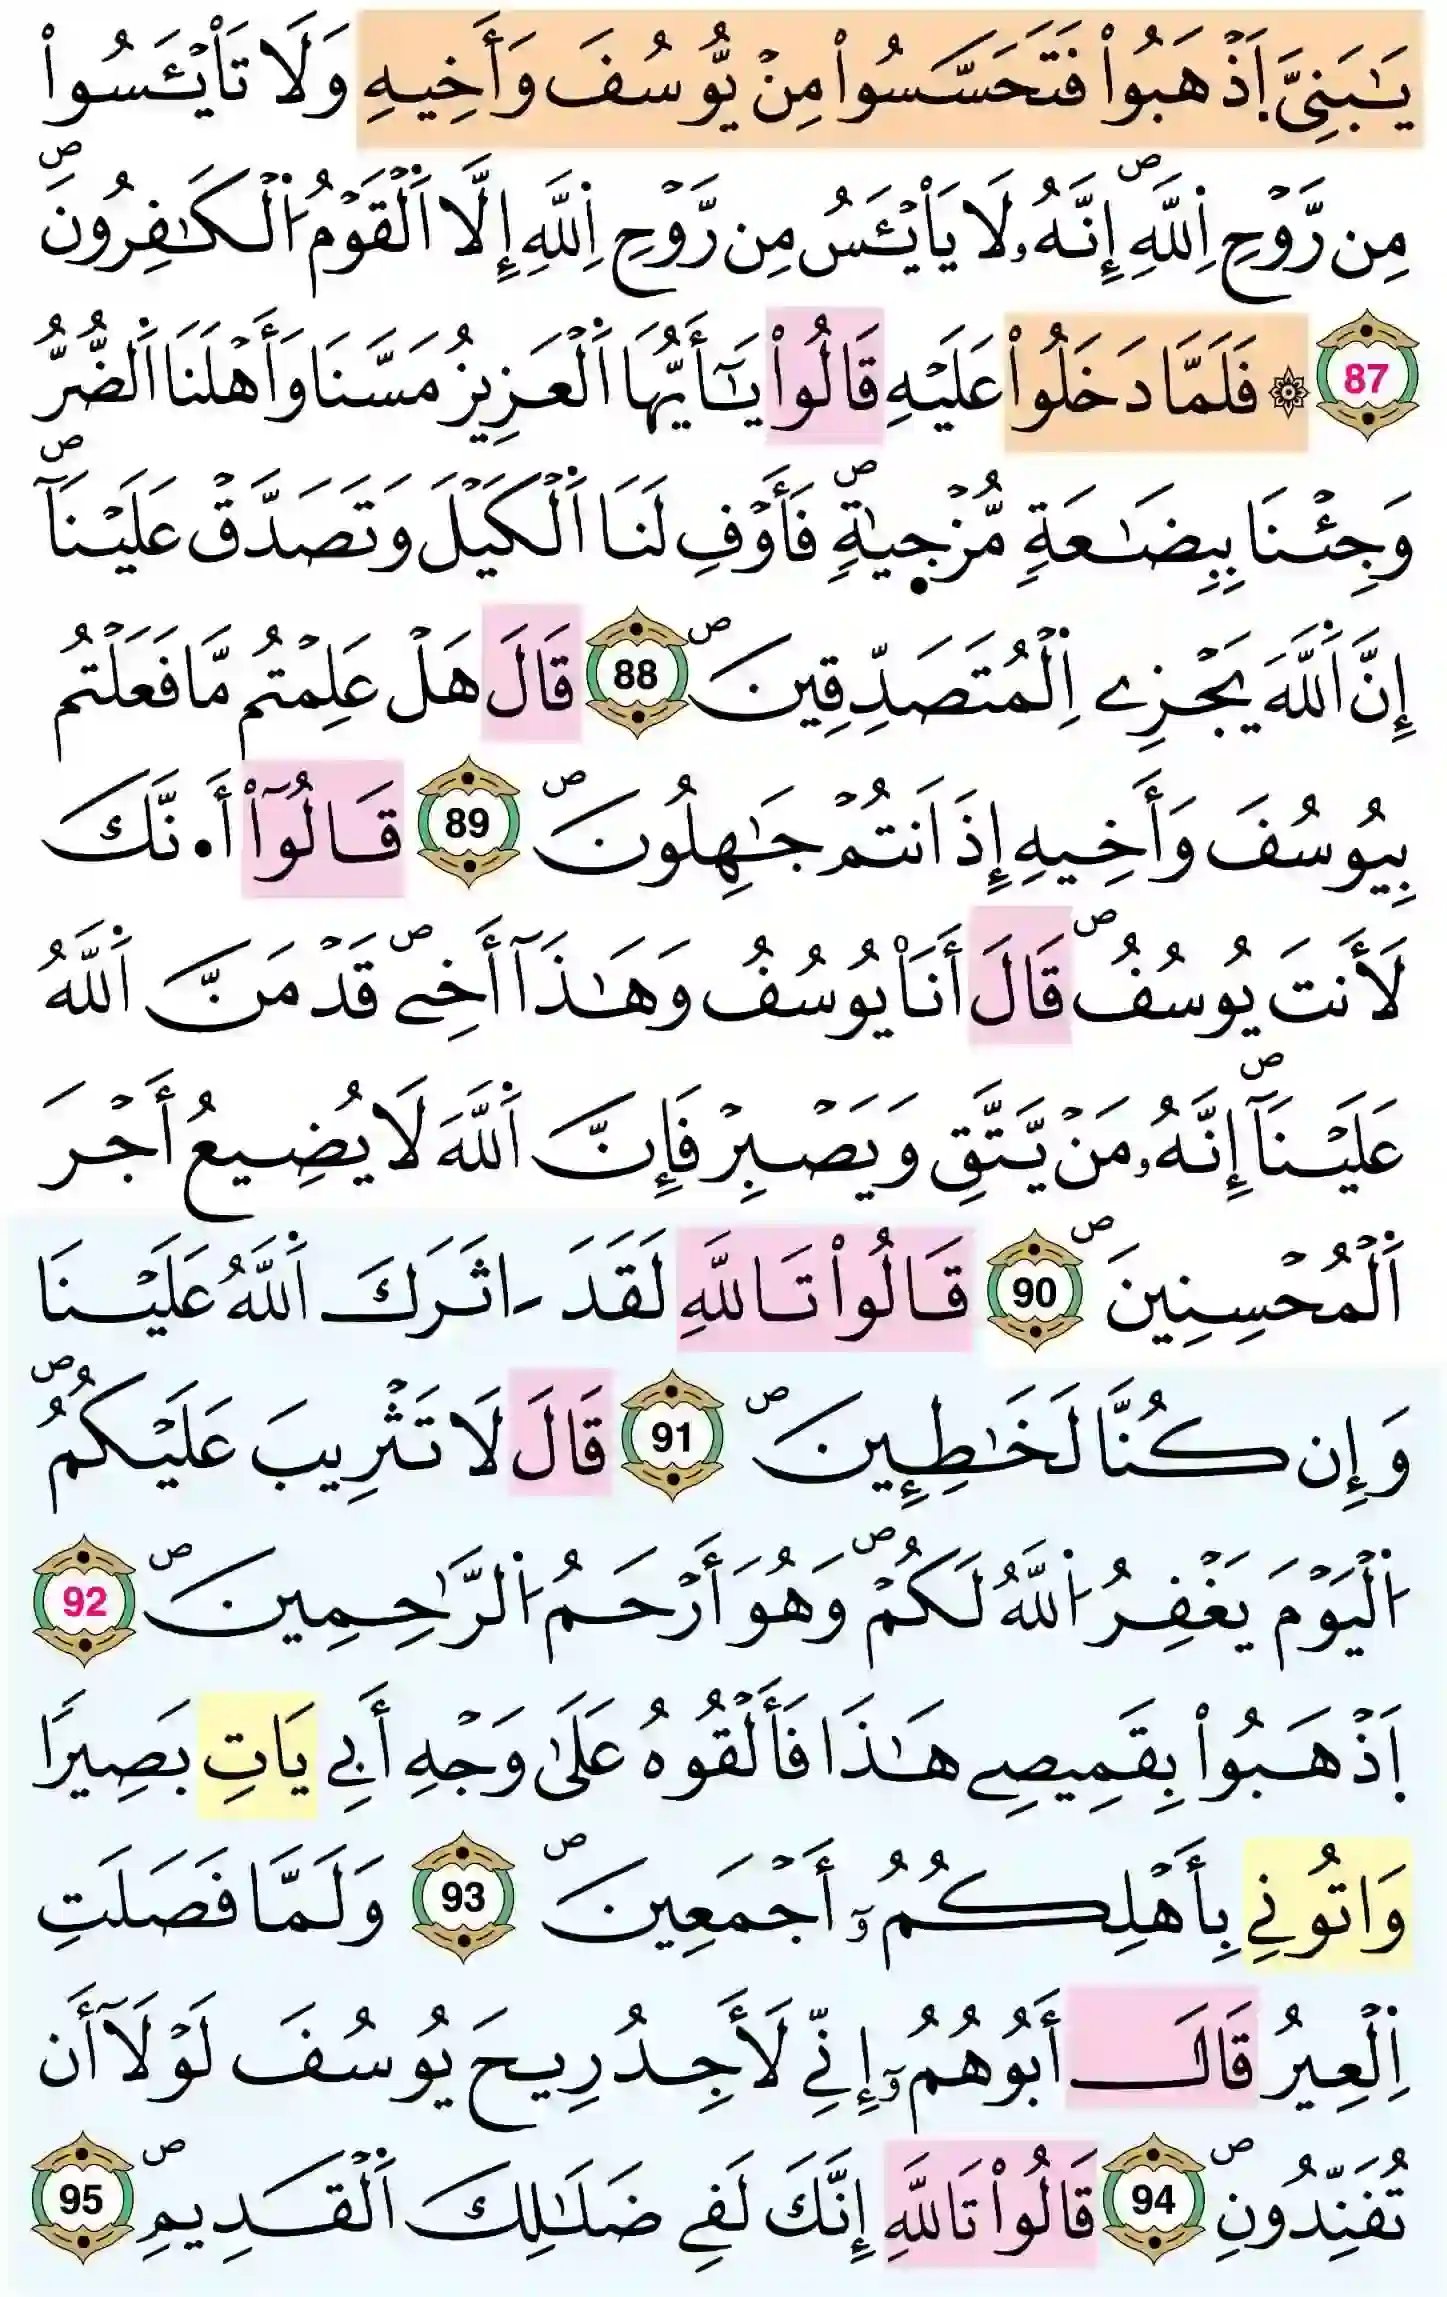 يَٰبَنِيَّ اَ۪ذْهَبُواْ فَتَحَسَّسُواْ مِنْ يُّوسُفَ وَأَخِيهِ وَلَا تَاْيْـَٔسُواْ
مِن رَّوْحِ اِ۬للَّهِۖ إِنَّهُۥ لَا يَاْيْـَٔسُ مِن رَّوْحِ اِ۬للَّهِ إِلَّا اَ۬لْقَوْمُ اُ۬لْكَٰفِرُونَۖ
87 ۞ فَلَمَّا دَخَلُواْ عَلَيْهِ قَالُواْ يَٰٓأَيُّهَا اَ۬لْعَزِيزُ مَسَّنَا وَأَهْلَنَا اَ۬لضُّرُّ
وَجِئْنَا بِبِضَٰعَةٖ مُّزْج۪يٰةٖۖ فَأَوْفِ لَنَا اَ۬لْكَيْلَ وَتَصَدَّقْ عَلَيْنَآۖ
إِنَّ اَ۬للَّهَ يَجْزِے اِ۬لْمُتَصَدِّقِينَۖ 88 قَالَ هَلْ عَلِمْتُم مَّا فَعَلْتُم
بِيُوسُفَ وَأَخِيهِ إِذَ اَنتُمْ جَٰهِلُونَۖ 89 قَالُوٓاْ أَ۟نَّكَ
لَأَنتَ يُوسُفُۖ قَالَ أَنَا۠ يُوسُفُ وَهَٰذَآ أَخِےۖ قَدْ مَنَّ اَ۬للَّهُ
عَلَيْنَآۖ إِنَّهُۥ مَنْ يَّتَّقِ وَيَصْبِرْ فَإِنَّ اَ۬للَّهَ لَا يُضِيعُ أَجْرَ
اَ۬لْمُحْسِنِينَۖ 90 قَالُواْ تَاللَّهِ لَقَدَ ـ۪اثَرَكَ اَ۬للَّهُ عَلَيْنَا
وَإِن كُنَّا لَخَٰطِـِٕينَۖ 91 قَالَ لَا تَثْرِيبَ عَلَيْكُمُۖ
اُ۬لْيَوْمَ يَغْفِرُ اُ۬للَّهُ لَكُمْۖ وَهُوَ أَرْحَمُ اُ۬لرَّٰحِمِينَۖ 92
اَ۪ذْهَبُواْ بِقَمِيصِے هَٰذَا فَأَلْقُوهُ عَلَىٰ وَجْهِ أَبِي يَاتِ بَصِيراٗ
وَاتُونِي بِأَهْلِكُمُۥٓ أَجْمَعِينَۖ 93 وَلَمَّا فَصَلَتِ
اِ۬لْعِيرُ قَالَ أَبُوهُمُۥٓ إِنِّي لَأَجِدُ رِيحَ يُوسُفَ لَوْلَآ أَن
تُفَنِّدُونِۖ 94 قَالُواْ تَاللَّهِ إِنَّكَ لَفِے ضَلَٰلِكَ اَ۬لْقَدِيمِۖ 95